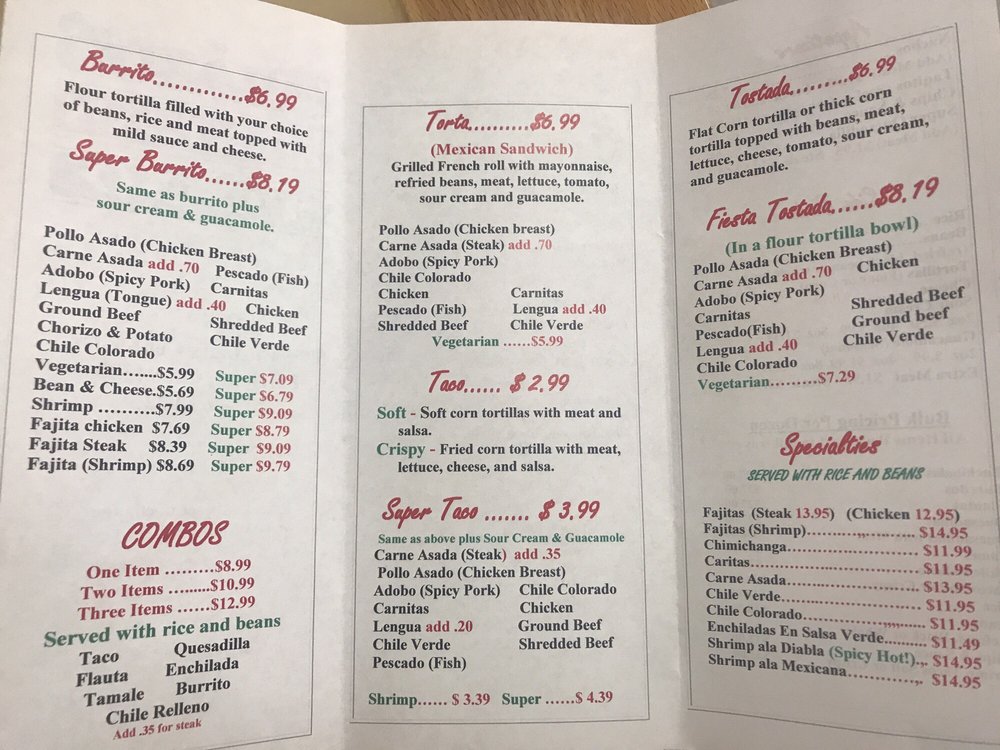 Burrito.............$6.99
Flour tortilla filled with your choice
of beans, rice and meat topped with
mild sauce and cheese.
Super Burrito......$8.19
Same as burrito plus
sour cream & guacamole.
Pollo Asado (Chicken Breast)
Carne Asada add .70 Pescado (Fish)
Adobo (Spicy Pork) Carnitas
Lengua (Tongue) add .40 Chicken
Ground Beef Shredded Beef
Chorizo & Potato Chile Verde
Chile Colorado
Vegetarian......$5.99 Super $7.09
Bean & Cheese.$5.69 Super $6.79
Shrimp ..........$7.99 Super $9.09
Fajita chicken $7.69 Super $8.79
Fajita Steak $8.39 Super $9.09
Fajita (Shrimp) $8.69 Super $9.79
COMBOS
One Item .........$8.99
Two Items .........$10.99
Three Items ......$12.99
Served with rice and beans
Taco Quesadilla
Flauta Enchilada
Tamale Burrito
Chile Relleno
Add .35 for steak
Torta..........$6.99
(Mexican Sandwich)
Grilled French roll with mayonnaise,
refried beans, meat, lettuce, tomato,
sour cream and guacamole.
Pollo Asado (Chicken breast)
Carne Asada (Steak) add .70
Adobo (Spicy Pork)
Chile Colorado
Chicken Carnitas
Pescado (Fish) Lengua add .40
Shredded Beef Chile Verde
Vegetarian ......$5.99
Taco...... $ 2.99
Soft - Soft corn tortillas with meat and
salsa.
Crispy - Fried corn tortilla with meat,
lettuce, cheese, and salsa.
Super Taco ....... $ 3.99
Same as above plus Sour Cream & Guacamole
Carne Asada (Steak) add .35
Pollo Asado (Chicken Breast)
Adobo (Spicy Pork) Chile Colorado
Carnitas Chicken
Lengua add .20 Ground Beef
Chile Verde Shredded Beef
Pescado (Fish)
Shrimp...... $ 3.39 Super ......$ 4.39
Tostada.........$6.99
Flat Corn tortilla or thick corn
tortilla topped with beans, meat,
lettuce, cheese, tomato, sour cream,
and guacamole.
Fiesta Tostada......$8.19
(In a flour tortilla bowl)
Pollo Asado (Chicken Breast)
Carne Asada add .70 Chicken
Adobo (Spicy Pork)
Carnitas Shredded Beef
Pescado(Fish) Ground beef
Lengua add .40 Chile Verde
Chile Colorado
Vegetarian.........$7.29
Specialties
SERVED WITH RICE AND BEANS
Fajitas (Steak 13.95) (Chicken 12.95)
Fajitas (Shrimp)........,,......... $14.95
Chimichanga........................ $11.99
Caritas................................ $11.95
Carne Asada........................ $13.95
Chile Verde.......................... $11.95
Chile Colorado............,,,,,....... $11.95
Enchiladas En Salsa Verde.......... $11.49
Shrimp ala Diabla (Spicy Hot!).,. $14.95
Shrimp ala Mexicana............,. $14.95